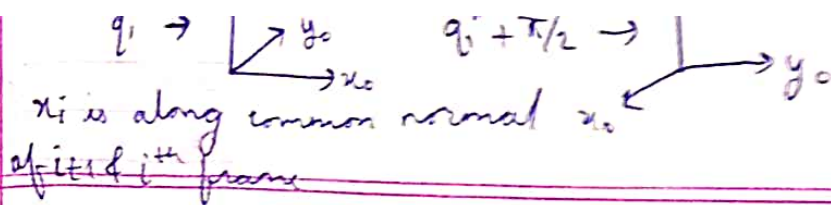 q₁ → y₀ qᵢ + π/2 → y₀
x₀
xᵢ is along common normal x₀
of i+1 & iᵗʰ frame